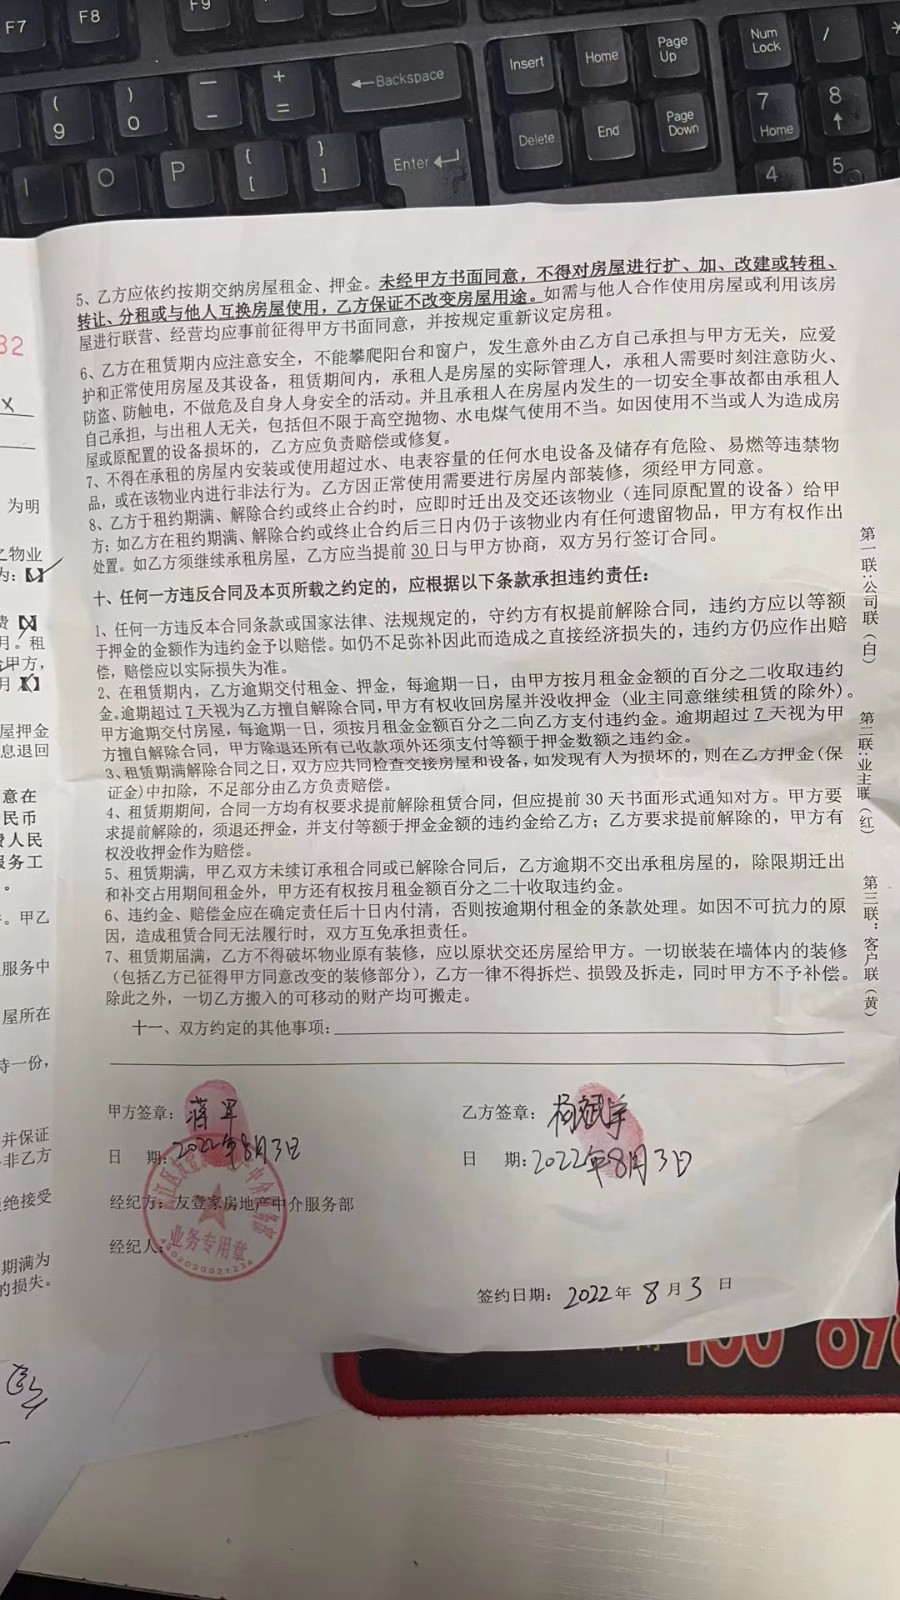 F7
F8
F9
( 9
) 0
— -
+ =
←Backspace
Insert
Home
Page Up
Num Lock
/
*
I
O
P
{ [
} ]
Enter
Delete
End
Page Down
7 Home
8 ↑
4
5
5、乙方应依约按期交纳房屋租金、押金。未经甲方书面同意，不得对房屋进行扩、加、改建或转租、
转让、分租或与他人互换房屋使用，乙方保证不改变房屋用途。如需与他人合作使用房屋或利用该房
屋进行联营、经营均应事前征得甲方书面同意，并按规定重新议定房租。
6、乙方在租赁期内应注意安全，不能攀爬阳台和窗户，发生意外由乙方自己承担与甲方无关，应爱
护和正常使用房屋及其设备，租赁期间内，承租人是房屋的实际管理人，承租人需要时刻注意防火、
防盗、防触电，不做危及自身人身安全的活动。并且承租人在房屋内发生的一切安全事故都由承租人
自己承担，与出租人无关，包括但不限于高空抛物、水电煤气使用不当。如因使用不当或人为造成房
屋或原配置的设备损坏的，乙方应负责赔偿或修复。
7、不得在承租的房屋内安装或使用超过水、电表容量的任何水电设备及储存有危险、易燃等违禁物
品，或在该物业内进行非法行为。乙方因正常使用需要进行房屋内部装修，须经甲方同意。
8、乙方于租约期满、解除合约或终止合约时，应即时迁出及交还该物业（连同原配置的设备）给甲
方；如乙方在租约期满、解除合约或终止合约后三日内仍于该物业内有任何遗留物品，甲方有权作出
处置。如乙方须继续承租房屋，乙方应当提前30日与甲方协商，双方另行签订合同。
十、任何一方违反合同及本页所载之约定的，应根据以下条款承担违约责任：
1、任何一方违反本合同条款或国家法律、法规规定的，守约方有权提前解除合同，违约方应以等额
于押金的金额作为违约金予以赔偿。如仍不足弥补因此而造成之直接经济损失的，违约方仍应作出赔
偿，赔偿应以实际损失为准。
2、在租赁期内，乙方逾期交付租金、押金，每逾期一日，由甲方按月租金金额的百分之二收取违约
金。逾期超过7天视为乙方擅自解除合同，甲方有权收回房屋并没收押金（业主同意继续租赁的除外）。
甲方逾期交付房屋，每逾期一日，须按月租金金额百分之二向乙方支付违约金。逾期超过7天视为甲
方擅自解除合同，甲方除退还所有已收款项外还须支付等额于押金数额之违约金。
3、租赁期满解除合同之日，双方应共同检查交接房屋和设备，如发现有人为损坏的，则在乙方押金（保
证金）中扣除，不足部分由乙方负责赔偿。
4、租赁期期间，合同一方均有权要求提前解除租赁合同，但应提前30天书面形式通知对方。甲方要
求提前解除的，须退还押金，并支付等额于押金金额的违约金给乙方；乙方要求提前解除的，甲方有
权没收押金作为赔偿。
5、租赁期满，甲乙双方未续订承租合同或已解除合同后，乙方逾期不交出承租房屋的，除限期迁出
和补交占用期间租金外，甲方还有权按月租金额百分之二十收取违约金。
6、违约金、赔偿金应在确定责任后十日内付清，否则按逾期付租金的条款处理。如因不可抗力的原
因，造成租赁合同无法履行时，双方互免承担责任。
7、租赁期届满，乙方不得破坏物业原有装修，应以原状交还房屋给甲方。一切嵌装在墙体内的装修
（包括乙方已征得甲方同意改变的装修部分），乙方一律不得拆烂、损毁及拆走，同时甲方不予补偿。
除此之外，一切乙方搬入的可移动的财产均可搬走。
十一、双方约定的其他事项：
甲方签章：蒋军
乙方签章：杨斌宇
日 期：2022年8月3日
日 期：2022年8月3日
经纪方：友壹家房地产中介服务部
业务专用章
经纪人：
签约日期：2022年8月3日
第一联：公司联（白）
第二联：业主联（红）
第三联：客户联（黄）
32
X
为明
之物业
为：
费
月。租
甲方，
月
屋押金
息退回
意在
民币
费人民
服务工
。
。甲乙
服务中
屋所在
持一份，
并保证
非乙方
绝接受
期满为
的损失。